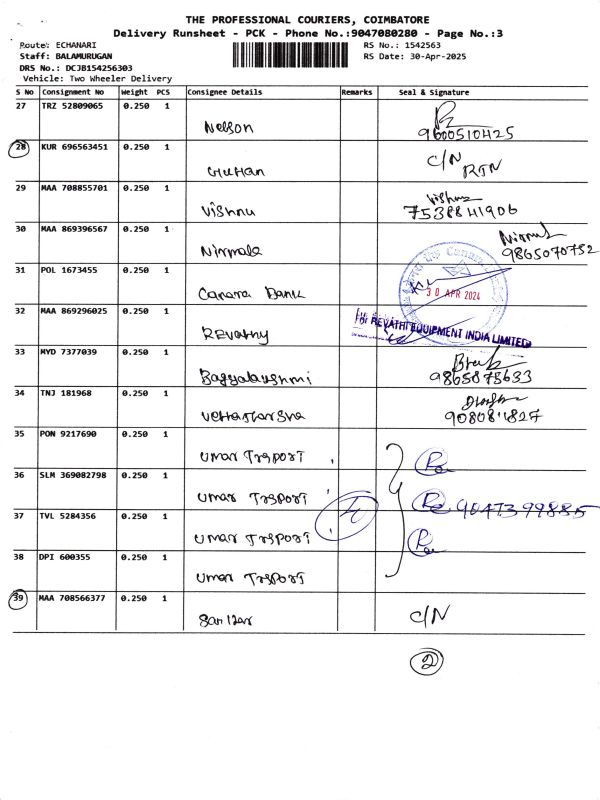 THE PROFESSIONAL COURIERS, COIMBATORE
Delivery Runsheet - PCK - Phone No.:9047080280 - Page No.:3
Route: ECHANARI RS No.: 1542563
Staff: BALAMURUGAN RS Date: 30-Apr-2025
DRS No.: DCJB154256303
Vehicle: Two Wheeler Delivery
S No Consignment No Weight PCS Consignee Details Remarks Seal & Signature
27 TRZ 52809065 0.250 1
Nelson 9600510425
28 KUR 696563451 0.250 1 C/N
Guhan RTN
29 MAA 708855701 0.250 1 Vishnu
Vishnu 7538841906
30 MAA 869396567 0.250 1 Nirmal
Nirmala 9865070752
31 POL 1673455 0.250 1
Canara Bank 30 APR 2024
32 MAA 869296025 0.250 1 For REVATHI EQUIPMENT INDIA LIMITED
Revathy
33 MYD 7377039 0.250 1
Bagyalakshmi 9865875633
34 TNJ 181968 0.250 1
35 PON 9217690 0.250 1
Umar Trsport
36 SLM 369082798 0.250 1
Umar Trsport 9047399885
37 TVL 5284356 0.250 1
Umar Trsport
38 DPI 600355 0.250 1
Umar Trsport
39 MAA 708566377 0.250 1
C/N
2